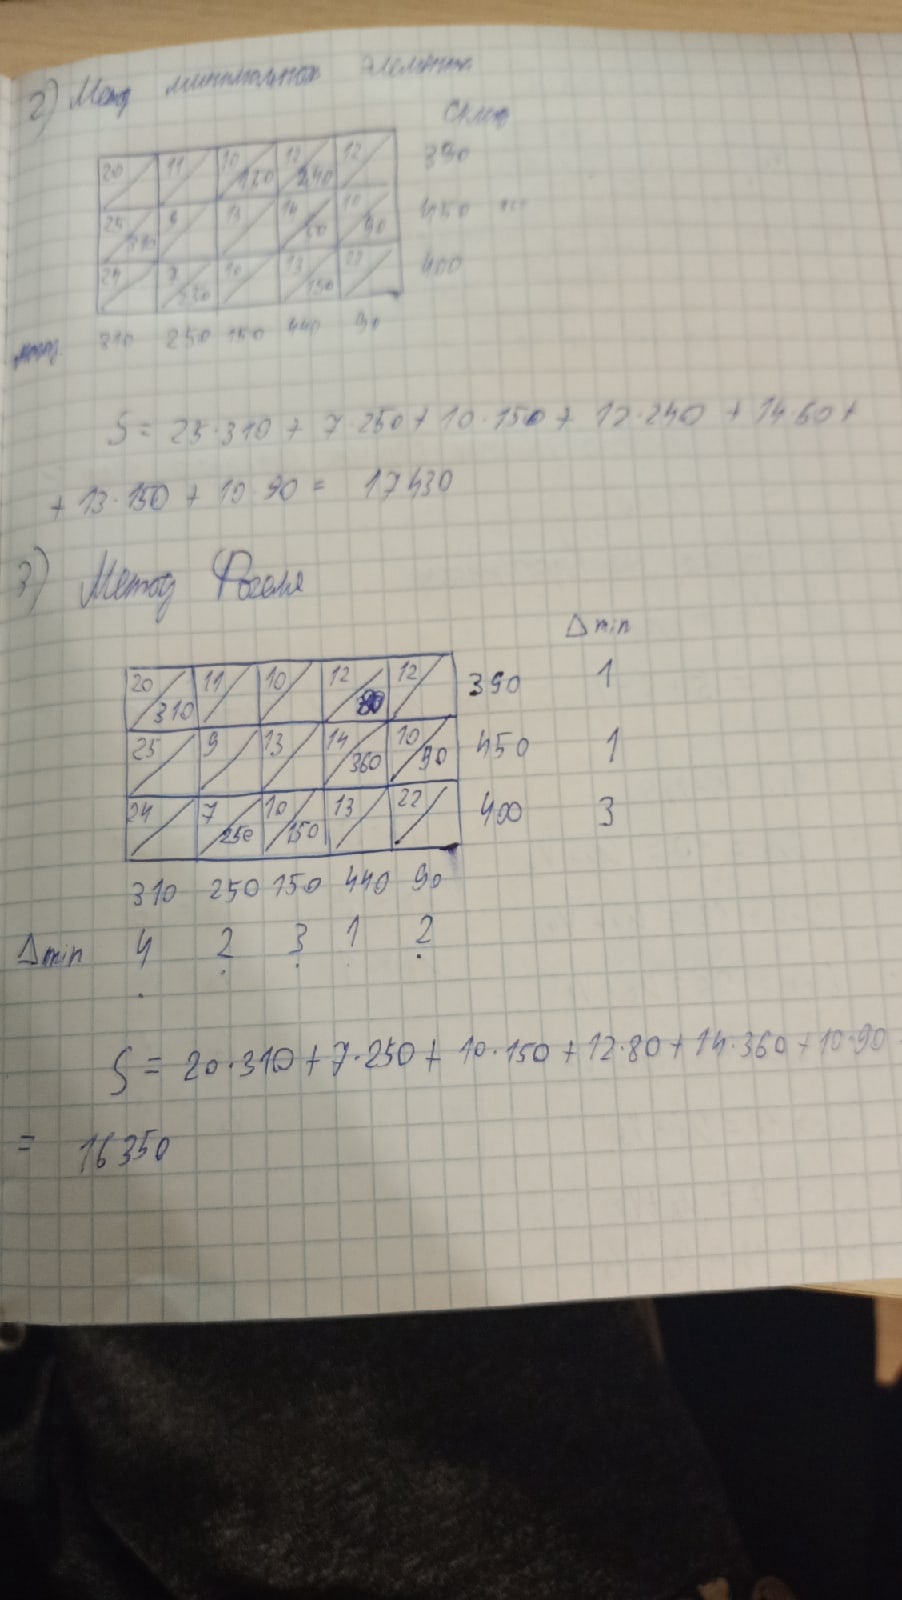 2) Метод минимального элемента
Склад
20 11 10 150 12 240 12 390
25 310 9 13 14 50 10 90 450
24 7 250 10 13 150 22 400
310 250 150 440 90
S = 25·310 + 7·250 + 10·150 + 12·240 + 14·50 +
+ 13·150 + 10·90 = 17430
3) Метод Фогеля
Δmin
20 310 11 10 12 80 12 390 1
25 9 13 14 360 10 90 450 1
24 7 250 10 150 13 22 400 3
310 250 150 440 90
Δmin 4 2 3 1 2
S = 20·310 + 7·250 + 10·150 + 12·80 + 14·360 + 10·90
= 16350